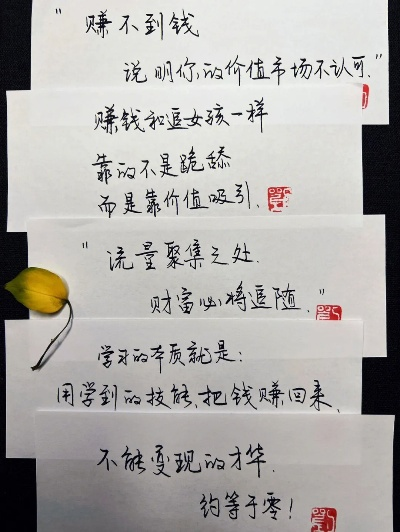 "赚不到钱
说明你的价值市场不认可."
赚钱和追女孩一样
靠的不是跪舔
而是靠价值吸引.
"流量聚集之处.
财富必将追随."
学习的本质就是:
用学到的技能,把钱赚回来.
不能变现的才华.
约等于零!